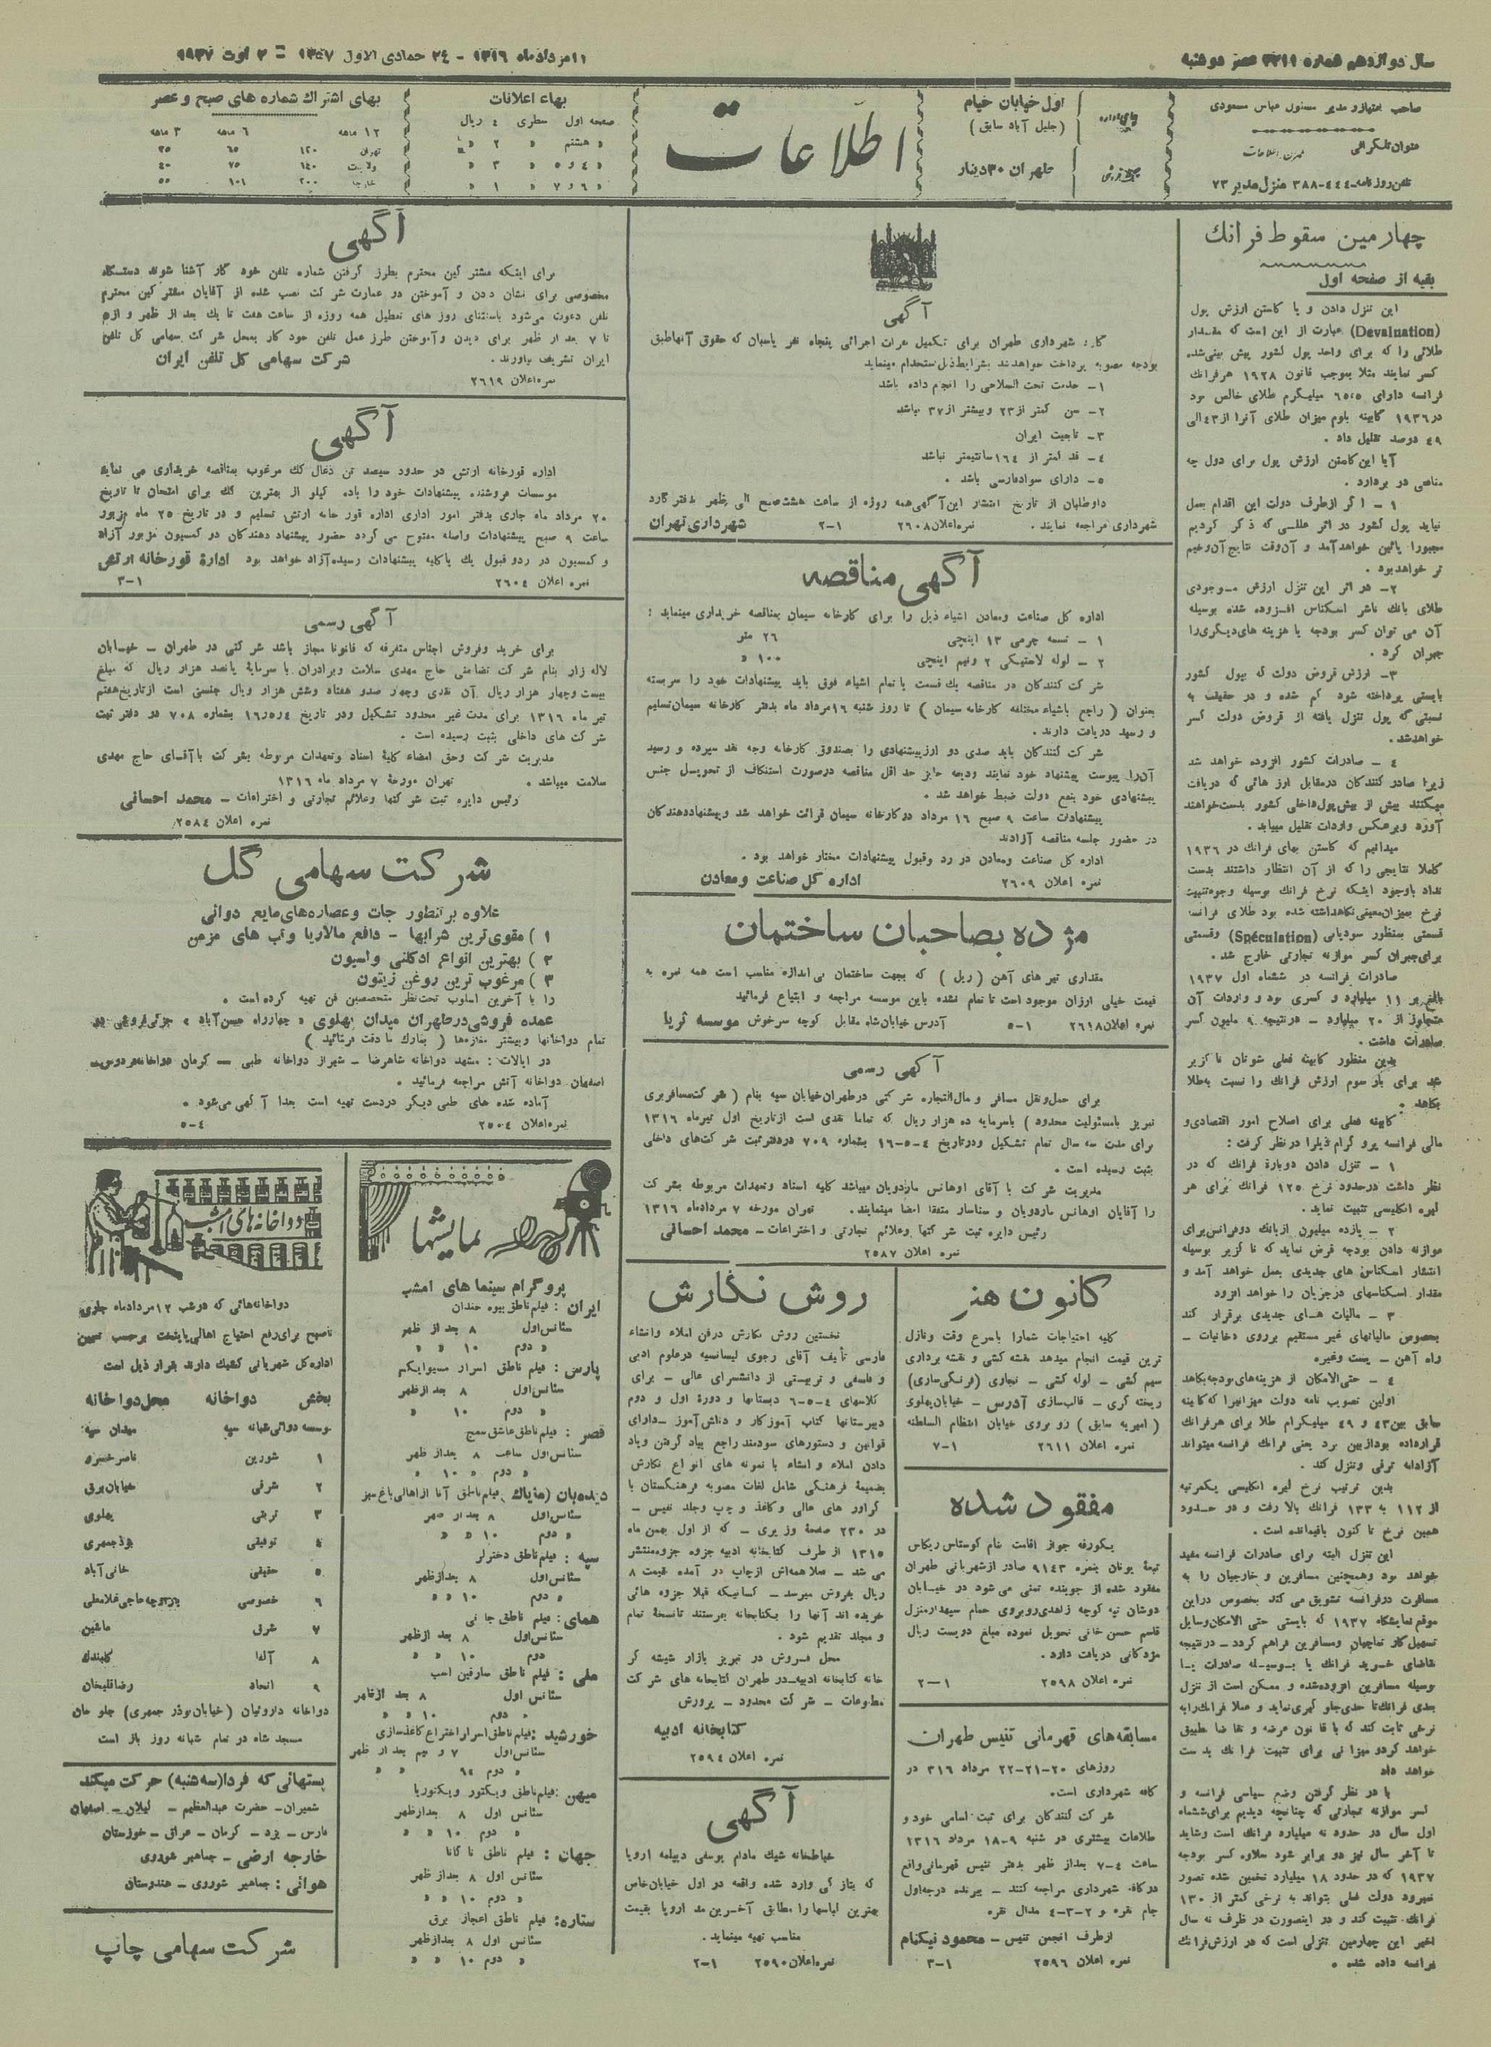 سال دوازدهم شماره ۳۲۱۱ عصر دوشنبه
۱۱ مرداد ماه ۱۳۱۶ - ۲٤ جمادی الاول ۱۳۵۷ = ۲ اوت ۱۹۳۷
صاحب امتیاز و مدیر مسئول عباس مسعودی
عنوان تلگرافی
طهران اطلاعات
تلفن روزنامه-٤٤٤-۳۸۸ منزل مدیر ۷۳
جای اداره
اول خیابان خیام
(جلیل آباد سابق)
تک فروشی
طهران ۳۰ دینار
اطلاعات
بهاء اعلانات
صفحه اول سطری ٤ ریال
« هشتم « ۲ «
« ٤ و ٥ « ۳ «
« ۶ و ۷ « ۱ «
بهای اشتراك شماره های صبح و عصر
۱۲ ماهه ۶ ماهه ۳ ماهه
تهران ۱۲۰ ۶۵ ۳۵
ولایت ۱٤۰ ۷۵ ٤۰
خارجه ۲۰۰ ۱۰۱ ۵۵
چهارمین سقوط فرانك
بقیه از صفحه اول
این تنزل دادن و یا کاستن ارزش پول
(Devaluation) عبارت از این است که مقدار
طلائی را که برای واحد پول کشور پیش بینی شده
کسر نمایند مثلا بموجب قانون ۱۹۲۸ هر فرانك
فرانسه دارای ۶۵،۵ میلیگرم طلای خالص بود
در ۱۹۳۶ کابینه بلوم میزان طلای آنرا از ٤۳ الی
٤۹ درصد تقلیل داد .
آیا این کاستن ارزش پول برای دول چه
منافعی در بردارد .
۱ - اگر از طرف دولت این اقدام بعمل
نیاید پول کشور در اثر عللی که ذکر کردیم
مجبورا پائین خواهد آمد و آن وقت نتایج آن وخیم
تر خواهد بود .
۲- در اثر این تنزل ارزش موجودی
طلای بانك ناشر اسکناس افزوده شده بوسیله
آن می توان کسر بودجه یا هزینه های دیگری را
جبران کرد .
۳- ارزش قروض دولت که بپول کشور
بایستی پرداخته شود کم شده و در حقیقت به
نسبتی که پول تنزل یافته از قروض دولت کسر
خواهد شد.
٤ - صادرات کشور افزوده خواهد شد
زیرا صادر کنندگان در مقابل ارز هائی که دریافت
میکنند بیش از پیش پول داخلی کشور بدست خواهند
آورد و بر عکس واردات تقلیل مییابد .
میدانیم که کاستن بهای فرانك در ۱۹۳۶
کاملا نتایجی را که از آن انتظار داشتند بدست
نداد باوجود اینکه نرخ فرانك بوسیله وجوه تثبیت
نرخ بمیزان معینی نگاهداشته شده بود طلای فرانسه
قسمتی بمنظور سودیابی (Spéculation) و قسمتی
برای جبران کسر موازنه تجارتی خارج شد .
صادرات فرانسه در ششماه اول ۱۹۳۷
بالغ بر ۱۱ میلیارد و کسری بود و واردات آن
متجاوز از ۲۰ میلیارد - در نتیجه ۹ ملیون کسر
صادرات داشت .
بدین منظور کابینه فعلی شوتان ناگزیر
شد برای بار سوم ارزش فرانك را نسبت به طلا
بکاهد .
کابینه فعلی برای اصلاح امور اقتصادی و
مالی فرانسه پرو گرام ذیل را در نظر گرفت :
۱ - تنزل دادن دوباره فرانك که در
نظر داشت در حدود نرخ ۱۲۵ فرانك برای هر
لیره انگلیسی تثبیت نماید.
۲ - یازده میلیون از بانك دو فرانس برای
موازنه دادن بودجه قرض نماید که ناگزیر بوسیله
انتشار اسکناس های جدیدی بعمل خواهد آمد و
مقدار اسکناسهای در جریان را خواهد افزود
۳ - مالیات های جدیدی برقرار کند
بخصوص مالیاتهای غیر مستقیم بر روی دخانیات -
راه آهن - پست و غیره
٤ - حتی الامکان از هزینه های بودجه بکاهد
اولین تصویب نامه دولت میزانیرا که کابینه
سابق بین ٤۳ و ٤۹ میلیگرام طلا برای هر فرانك
قرار داده بود از بین برد یعنی فرانك فرانسه میتواند
آزادانه ترقی و تنزل کند .
بدین ترتیب نرخ لیره انگلیسی یکمرتبه
از ۱۱۲ به ۱۳۳ فرانك بالا رفت و در حدود
همین نرخ تا کنون باقیمانده است .
این تنزل البته برای صادرات فرانسه مفید
خواهد بود و همچنین مسافرین و خارجیان را به
مسافرت در فرانسه تشویق می کند بخصوص در این
موقع نمایشگاه ۱۹۳۷ که بایستی حتی الامکان وسایل
تسهیل کار تماچیان و مسافرین فراهم گردد - در نتیجه
تقاضای خرید فرانك یا بوسیله صادرات یا
بوسیله مسافرین افزوده شده و ممکن است از تنزل
بعدی فرانك تا حدی جلو گیری نماید و عملا فرانك را به
نرخی ثابت کند که با قانون عرضه و تقاضا تطبیق
خواهد کرد و میزانی برای تثبیت فرانك بدست
خواهد داد
با در نظر گرفتن وضع سیاسی فرانسه و
کسر موازنه تجارتی که چنانچه دیدیم برای ششماه
اول سال در حدود نه میلیارد فرانك است و شاید
تا آخر سال نیز دو برابر شود بعلاوه کسر بودجه
۱۹۳۷ که در حدود ۱۸ میلیارد تخمین شده تصور
نمیرود دولت فعلی بتواند به نرخی کمتر از ۱۳۰
فرانك تثبیت کند و در اینصورت در ظرف نه سال
اخیر این چهارمین تنزلی است که در ارزش فرانك
فرانسه داده شده .
آگهی
کار: شهرداری طهران برای تکمیل نفرات اجرائی پنجاه نفر پاسبان که حقوق آنها طبق
بودجه مصوبه پرداخت خواهد شد بشرایط ذیل استخدام مینماید
۱- خدمت تحت السلاحی را انجام داده باشد
۲- سن کمتر از ۲۳ و بیشتر از ۳۷ نباشد
۳- تابعیت ایران
٤- قد کمتر از ۱۶٤ سانتیمتر نباشد
۵- دارای سواد فارسی باشد .
داوطلبان از تاریخ انتشار این آگهی همه روزه از ساعت هشت صبح الی ظهر بدفتر گارد
شهرداری مراجعه نمایند . نمره اعلان ۲۶۰۸ ۱-۲ شهرداری تهران
آگهی مناقصه
اداره کل صناعت و معادن اشیاء ذیل را برای کارخانه سیمان بمناقصه خریداری مینماید :
۱ - تسمه چرمی ۱۳ اینچی ۲۶ متر
۲ - لوله لاستیکی ۲ ونیم اینچی ۱۰۰ «
شرکت کنندگان در مناقصه یك قسمت یا تمام اشیاء فوق باید پیشنهادات خود را سربسته
بعنوان ( راجع باشیاء مختلفه کارخانه سیمان ) تا روز شنبه ۱۶ مرداد ماه بدفتر کارخانه سیمان تسلیم
و رسید دریافت دارند .
شرکت کنندگان باید صدی دو ارز پیشنهادی را بصندوق کارخانه وجه نقد سپرده و رسید
آنرا پیوست پیشنهاد خود نمایند ودیعه حایز حد اقل مناقصه درصورت استنکاف از تحویل جنس
پیشنهادی خود بنفع دولت ضبط خواهد شد .
پیشنهادات ساعت ۹ صبح ۱۶ مرداد در کارخانه سیمان قرائت خواهد شد و پیشنهاد دهندگان
در حضور جلسه مناقصه آزادند
اداره کل صناعت و معادن در رد و قبول پیشنهادات مختار خواهد بود .
نمره اعلان ۲۶۰۹ اداره کل صناعت و معادن
مژده بصاحبان ساختمان
مقداری تیر های آهن ( ریل ) که بجهت ساختمان بی اندازه مناسب است همه نمره به
قیمت خیلی ارزان موجود است تا تمام نشده باین موسسه مراجعه و ابتیاع فرمائید
نمره اعلان ۲۶۱۸ ۱-۵ آدرس خیابان شاه مقابل کوچه سرخوش موسسه ثریا
آگهی رسمی
برای حمل و نقل مسافر و مال التجاره شرکتی در طهران خیابان سپه بنام ( شرکت مسافربری
تبریز با مسئولیت محدود ) با سرمایه ده هزار ریال که تماما نقدی است از تاریخ اول تیرماه ۱۳۱۶
برای مدت سه سال تمام تشکیل و در تاریخ ٤-۵-۱۶ بشماره ۷۰۹ در دفتر ثبت شرکت های داخلی
بثبت رسیده است .
مدیریت شرکت با آقای اوهانس ماردویان میباشد کلیه اسناد و تعهدات مربوطه بشرکت
را آقایان اوهانس ماردویان و سناسار متفقا امضا مینمایند. تهران مورخه ۷ مرداد ماه ۱۳۱۶
رئیس دایره ثبت شرکتها و علائم تجارتی و اختراعات - محمد احسائی
نمره اعلان ۲۵۸۷
کانون هنر
کلیه احتیاجات شما را با سرع وقت و نازل
ترین قیمت انجام میدهد نقشه کشی و نقشه برداری
سیم کشی - لوله کشی - نجاری (فرنگی سازی)
ریخته گری - قالب سازی آدرس - خیابان پهلوی
( امیریه سابق ) رو بروی خیابان انتظام السلطنه
نمره اعلان ۲۶۱۱ ۱-۷
مفقود شده
یکورقه جواز اقامت بنام کوستاس ریکاس
تبعه یونان بنمره ۹۱٤۳ صادر از شهربانی طهران
مفقود شده از جوینده تمنی می شود در خیابان
دوشان تپه کوچه زاهدی روبروی حمام سپهدار منزل
قاسم حسن خانی تحویل نموده مبلغ دویست ریال
مژدگانی دریافت دارد.
نمره اعلان ۲۵۹۸ ۱-۲
مسابقه های قهرمانی تنیس طهران
روزهای ۲۰-۲۱-۲۲ مرداد ۳۱۶ در
کافه شهرداری است.
شرکت کنندگان برای ثبت اسامی خود و
طلاعات بیشتری در شنبه ۹-۱۸ مرداد ۱۳۱۶
ساعت ٤-۷ بعد از ظهر بدفتر تنیس قهرمانی واقع
در کافه شهرداری مراجعه کنند - برنده درجه اول
جام نقره و ۲-۳-٤ مدال نقره
از طرف انجمن تنیس - محمود نیکنام
نمره اعلان ۲۵۹۶ ۱-۳
روش نگارش
نخستین روش نگارش در فن املاء و انشاء
فارسی تألیف آقای رجوی لیسانسیه در علوم ادبی
و فلسفی و تربیتی از دانشسرای عالی - برای
کلاسهای ٤-۵-۶ دبستانها و دورهٔ اول و دوم
دبیرستانها کتاب آموزگار و دانش آموز - دارای
قوانین و دستورهای سودمند راجع بیاد گرفتن و یاد
دادن املاء و انشاء با نمونه های انواع نگارش
بضمیمهٔ فرهنگی شامل لغات مصوبه فرهنگستان با
گراور های عالی و کاغذ و چاپ و جلد نفیس -
در ۲۳۰ صفحهٔ وزیری - که از اول بهمن ماه
۱۳۱۵ از طرف کتابخانه ادبیه جزوه جزوه منتشر
می شد - فعلا همه اش از چاپ در آمده قیمت ۸
ریال بفروش میرسد - کسانیکه قبلا جزوه هائی
خریده اند آنها را بکتابخانه بفرستند تا نسخهٔ تمام
و مجلد تقدیم شود .
محل فروش در تبریز بازار شیشه گر
خانه کتابخانه ادبیه - در طهران کتابخانه های شرکت
مطبوعات - شرکت محدود - پرورش
کتابخانه ادبیه
نمره اعلان ۲۵۹٤
آگهی
خیاطخانه شیك مادام یوسفی دیپلمه اروپا
که بتازگی وارد شده واقعه در اول خیابان خاص
بهترین لباسها را مطابق آخرین مد اروپا بقیمت
مناسب تهیه مینماید.
نمره اعلان ۲۵۹۰ ۱-۲
آگهی
برای اینکه مشترکین محترم بطرز گرفتن شماره تلفن خود کار آشنا شوند دستگاه
مخصوصی برای نشان دادن و آموختن در عمارت شرکت نصب شده از آقایان مشترکین محترم
تلفن دعوت می شود باستثنای روز های تعطیل همه روزه از ساعت هفت تا یك بعد از ظهر و از ۳
تا ۷ بعد از ظهر برای دیدن و آموختن طرز عمل تلفن خود کار بمحل شرکت سهامی کل تلفن
ایران تشریف بیاورند . شرکت سهامی کل تلفن ایران
نمره اعلان ۲۶۱۹
آگهی
اداره قورخانه ارتش در حدود سیصد تن ذغال کك مرغوب بمناقصه خریداری می نماید
موسسات فروشنده پیشنهادات خود را با ده کیلو از بهترین کك برای امتحان تا تاریخ
۲۰ مرداد ماه جاری بدفتر امور اداری اداره قورخانه ارتش تسلیم و در تاریخ ۲۵ ماه مزبور
ساعت ۹ صبح پیشنهادات واصله مفتوح می گردد حضور پیشنهاد دهندگان در کمسیون مزبور آزاد
و کمسیون در رد و قبول یك یا کلیه پیشنهادات رسیده آزاد خواهد بود ادارهٔ قورخانه ارتش
نمره اعلان ۲۶۰٤ ۱-۳
آگهی رسمی
برای خرید و فروش اجناس متفرقه که قانونا مجاز باشد شرکتی در طهران - خیابان
لاله زار بنام شرکت تضامنی حاج مهدی سلامت و برادران با سرمایهٔ پانصد هزار ریال که مبلغ
بیست و چهار هزار ریال آن نقدی و چهار صد و هفتاد و شش هزار ریال جنسی است از تاریخ هفتم
تیر ماه ۱۳۱۶ برای مدت غیر محدود تشکیل و در تاریخ ٤ر۵ر۱۶ بشماره ۷۰۸ در دفتر ثبت
شرکت های داخلی بثبت رسیده است .
مدیریت شرکت و حق امضاء کلیهٔ اسناد و تعهدات مربوطه بشرکت با آقای حاج مهدی
سلامت میباشد . تهران مورخهٔ ۷ مرداد ماه ۱۳۱۶
رئیس دایره ثبت شرکتها و علائم تجارتی و اختراعات - محمد احسائی
نمره اعلان ۲۵۸٤
شرکت سهامی گل
علاوه بر تنطور جات و عصاره های مایع دوائی
۱ ) مقوی ترین شرابها - دافع مالاریا و تب های مزمن
۲ ) بهترین انواع ادکلنی و لسیون
۳ ) مرغوب ترین روغن زیتون
را با آخرین اسلوب تحت نظر متخصصین فن تهیه کرده است .
عمده فروشی در طهران میدان پهلوی « چهارراه حسن آباد » جزئی فروشی در
تمام دواخانها و بیشتر مغازه ها ( بمارك ما دقت فرمائید )
در ایالات : مشهد دواخانه شاهرضا - شیراز دواخانه طبی - کرمان دواخانه فردوسی
اصفهان دواخانه آتش مراجعه فرمائید .
آماده شده های طبی دیگر در دست تهیه است بعدا آگهی می شود .
نمره اعلان ۲۵۰٤ ٤-۵
نمایشها
پروگرام سینما های امشب
ایران : فیلم ناطق بیوه خندان
سئانس اول ۸ بعد از ظهر
« دوم ۱۰ « «
پارس : فیلم ناطق اسرار مسیو ایکس
سئانس اول ۸ بعد از ظهر
« دوم ۱۰ «
قصر : فیلم ناطق عاشق سمج
سئانس اول ساعت ۸ بعد از ظهر
« دوم « ۱۰ «
دیده بان (مذیاك) فیلم ناطق آنا از اهالی باغ سبز
سئانس اول ۸ بعد از ظهر
« دوم ۱۰ « «
سپه : فیلم ناطق دختر لر
سئانس اول ۸ بعد از ظهر
« دوم ۱۰ « «
همای : فیلم ناطق جانی
سئانس اول ۸ بعد از ظهر
دوم ۱۰ « «
ملی : فیلم ناطق سارقین اسب
سئانس اول ۸ بعد از ظهر
« دوم ۱۰ « «
خورشید : فیلم ناطق اسرار اختراع کاغذ سازی
سئانس اول ۷ و نیم بعد از ظهر
« دوم « «
میهن : فیلم ناطق ویکتور و یکتوریا
سئانس اول ۸ بعد از ظهر
« دوم ۱۰ « «
جهان : فیلم ناطق ناگانا
سئانس اول ۸ بعد از ظهر
« دوم ۱۰ « «
ستاره : فیلم ناطق اعجاز برق
سئانس اول ۸ بعد از ظهر
« دوم ۱۰ « «
دواخانه های امشب
دواخانه هائی که در شب ۱۲ مرداد ماه جاری
تا صبح برای رفع احتیاج اهالی پایتخت بر حسب تعیین
اداره کل شهربانی کشیك دارند بقرار ذیل است
بخش دواخانه محل دواخانه
موسسه دوائی شبانه سپه میدان سپه
۱ شورین ناصر خسرو
۲ شرقی خیابان برق
۳ ترقی پهلوی
٤ توفیقی بوذرجمهری
۵ حقیقی خانی آباد
۶ خصوصی بازارچه حاجی غلامعلی
۷ شرق ماشین
۸ آلفا گلبندك
۹ اتحاد رضاقلیخان
دواخانه داروئیان (خیابان بوذر جمهری) جلو خان
مسجد شاه در تمام شبانه روز باز است
پستهائی که فردا (سه شنبه) حرکت میکند
شمیران - حضرت عبدالعظیم - گیلان - اصفهان
فارس - یزد - کرمان - عراق - خوزستان
خارجه ارضی - جماهیر شوروی
هوائی : جماهیر شوروی - هندوستان
شرکت سهامی چاپ